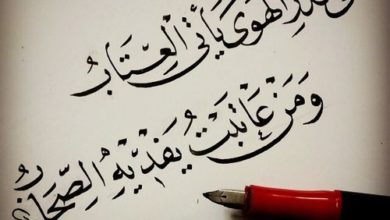 قَدَرِ الْهَوَى يَأْتي الْعِتَابُ
وَمَنْ عَاتَبْتُ يَفْدِيْهِ الصِّحَابُ